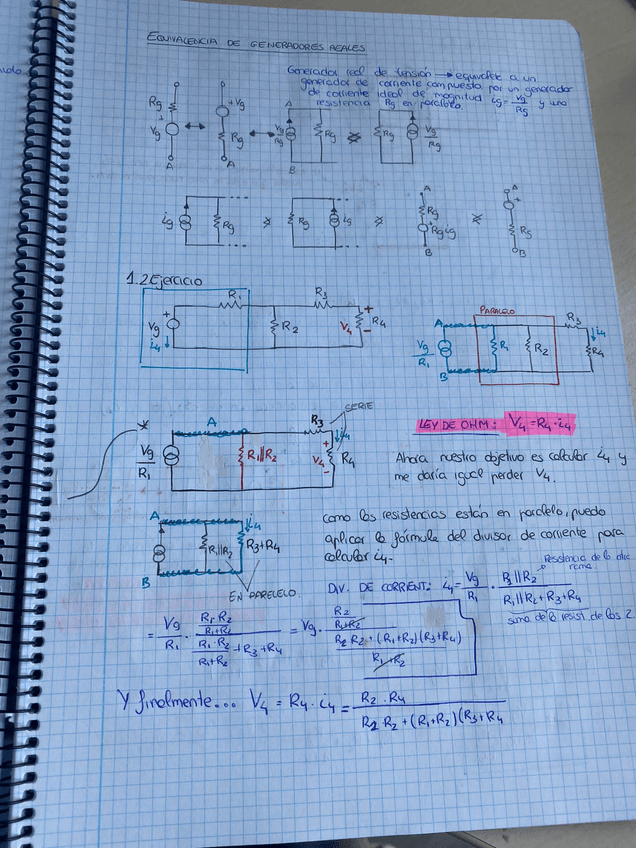 EQUIVALENCIA DE GENERADORES REALES
Generador real de tensión → equivale a un
generador de corriente compuesto por un generador
de corriente ideal de magnitud ig = Vg/Rg y una
resistencia Rg en paralelo.
Rg Vg + A ↔ +Vg Rg A ↔ A Vg/Rg Rg B Rg Vg/Rg
ig Rg Rg ig A Rg + Rg ig B A + Rg B
1.2 Ejercicio
Vg + i4 R1 R2 R3 + V4 - R4
PARALELO
A Vg/R1 B R1 R2 R3 i4 R4
* A Vg/R1 R1||R2 R3 SERIE i4 + V4 - R4
LEY DE OHM: V4 = R4 · i4
Ahora nuestro objetivo es calcular i4 y
me daría igual perder V4.
A B R1||R2 i4 R3+R4
EN PARELELO
como las resistencias están en paralelo, puedo
aplicar la fórmula del divisor de corriente para
calcular i4.
Resistencia de la otra
rama
DIV. DE CORRIENT: i4 = Vg/R1 · R1||R2 / R1||R2 + R3 + R4
suma de la resist de las 2
= Vg/R1 · (R1·R2 / R1+R2) / (R1·R2 / R1+R2 + R3 + R4) = Vg · (R2 / R1+R2) / (R1 R2 + (R1+R2)(R3+R4) / R1+R2)
Y finalmente... V4 = R4 · i4 = R2 · R4 / R1 R2 + (R1+R2)(R3+R4